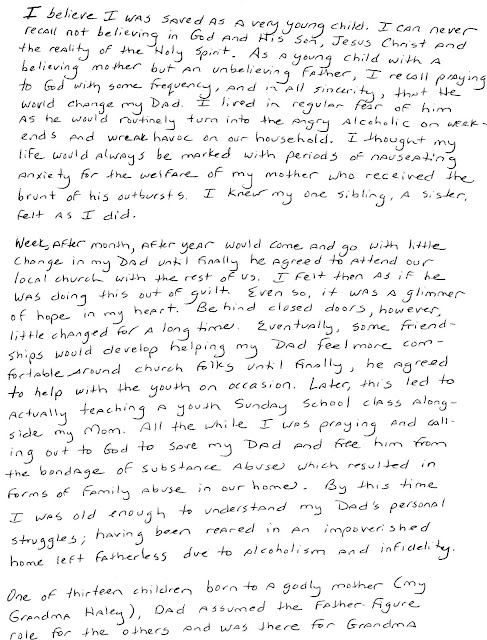 I believe I was saved as a very young child. I can never
recall not believing in God and His Son, Jesus Christ and
the reality of the Holy Spirit. As a young child with a
believing mother but an unbelieving Father, I recall praying
to God with some frequency, and in all sincerity, that He
would change my Dad. I lived in regular fear of him
as he would routinely turn into the angry alcoholic on week-
ends and wreak havoc on our household. I thought my
life would always be marked with periods of nauseating
anxiety for the welfare of my mother who received the
brunt of his outbursts. I knew my one sibling, a sister,
felt as I did.
Week, after month, after year would come and go with little
change in my Dad until finally he agreed to attend our
local church with the rest of us. I felt then as if he
was doing this out of guilt. Even so, it was a glimmer
of hope in my heart. Behind closed doors, however,
little changed for a long time. Eventually, some friend-
ships would develop helping my Dad feel more com-
fortable around church folks until finally, he agreed
to help with the youth on occasion. Later, this led to
actually teaching a youth Sunday School class along-
side my Mom. All the while I was praying and call-
ing out to God to save my Dad and free him from
the bondage of substance abuse which resulted in
forms of family abuse in our home. By this time
I was old enough to understand my Dad's personal
struggles; having been reared in an impoverished
home left fatherless due to alcoholism and infidelity.
One of thirteen children born to a godly mother (my
Grandma Haley), Dad assumed the Father figure
role for the others and was there for Grandma